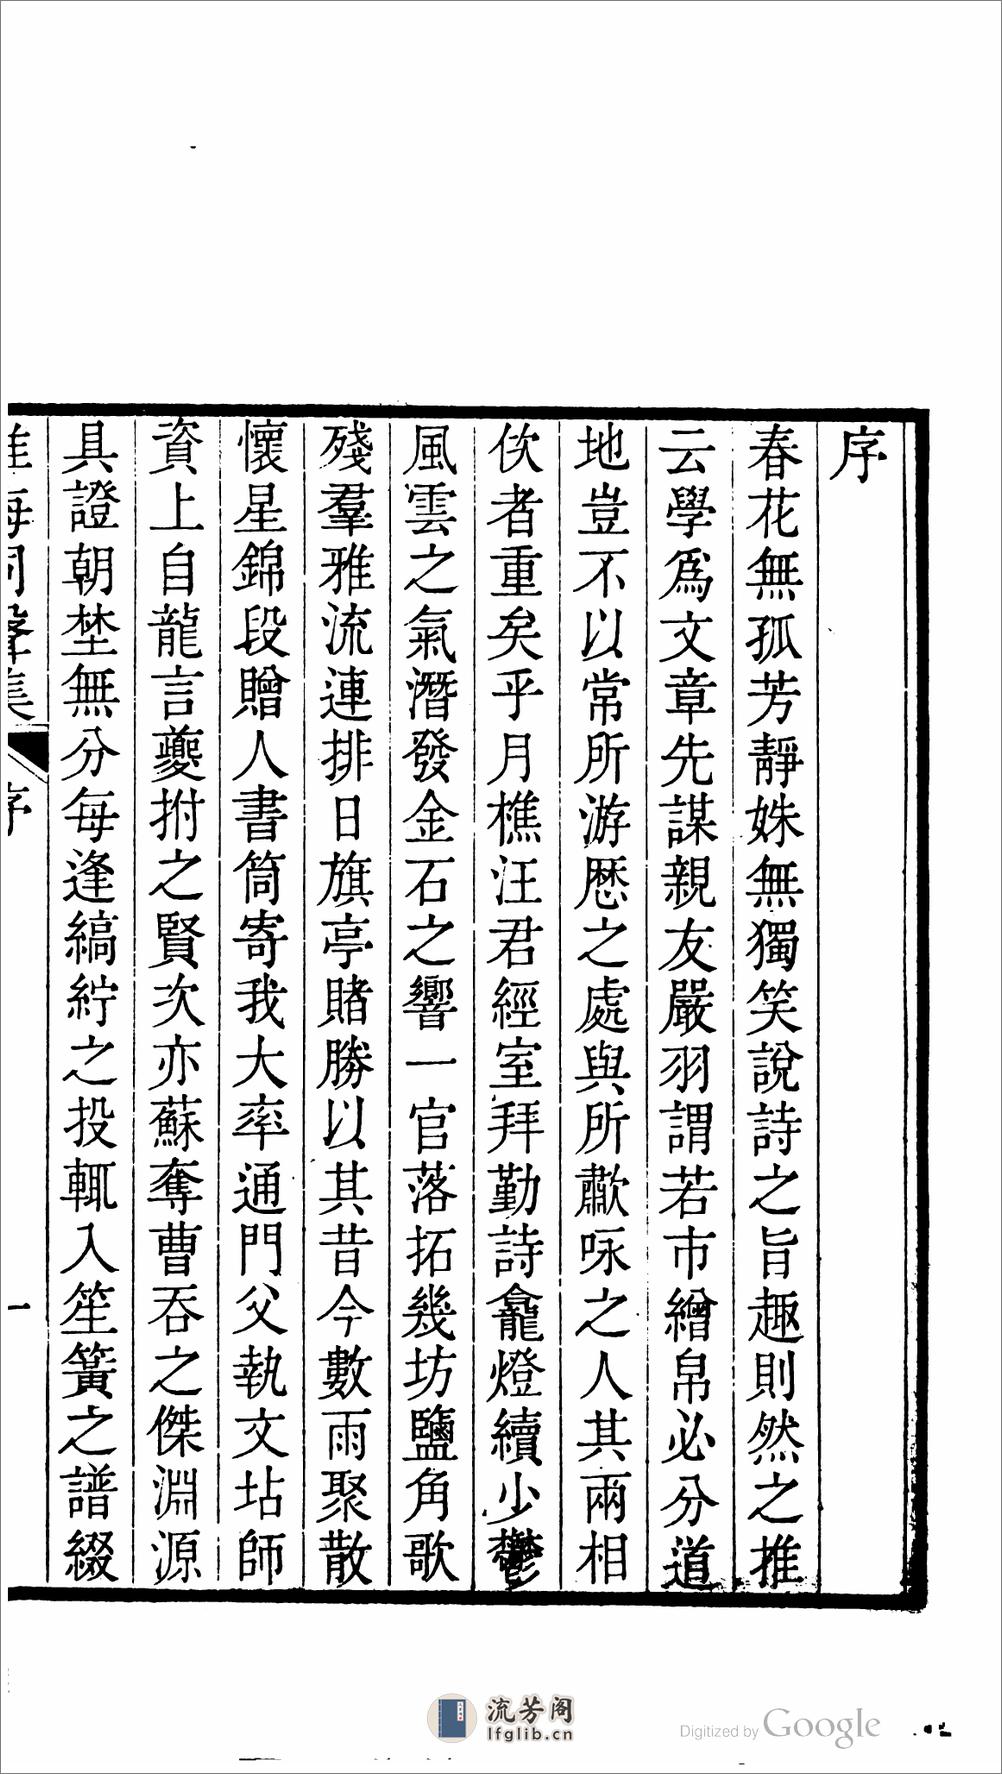 序
春花無孤芳靜姝無獨笑說詩之旨趣則然之推
云學爲文章先謀親友嚴羽謂若市繒帛必分道
地豈不以常所游歷之處與所歗咏之人其兩相
佽者重矣乎月樵汪君經室拜勤詩龕燈續少鬱
風雲之氣潛發金石之響一官落拓幾坊鹽角歌
殘羣雅流連排日旗亭賭勝以其昔今數雨聚散
懷星錦段贈人書筒寄我大率通門父執文坫師
資上自龍言夔拊之賢次亦蘇奪曹吞之傑淵源
具證朝埜無分每逢縞紵之投輒入笙簧之譜綴
淮海同聲集
序
一
流芳阁
lfglib.cn
Digitized by Google